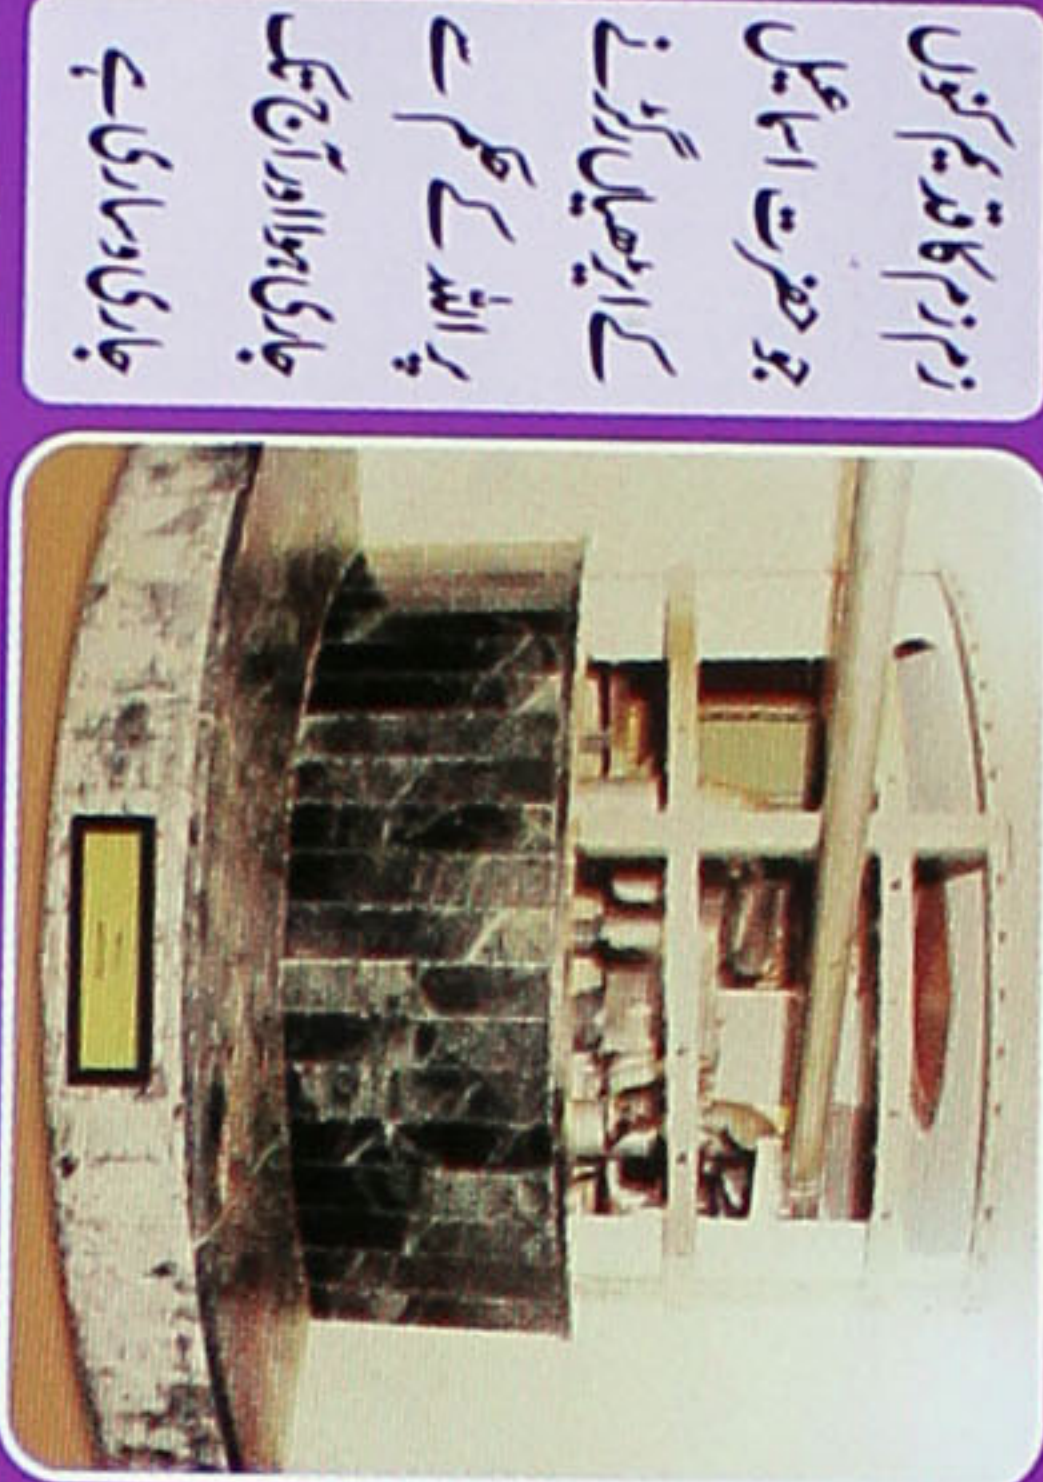 زم زم کا قدیم کنواں
جو حضرت اسماعیل
کے ایڑھیاں رگڑنے
پر اللہ کے حکم سے
جاری ہوا اور آج تک
جاری و ساری ہے